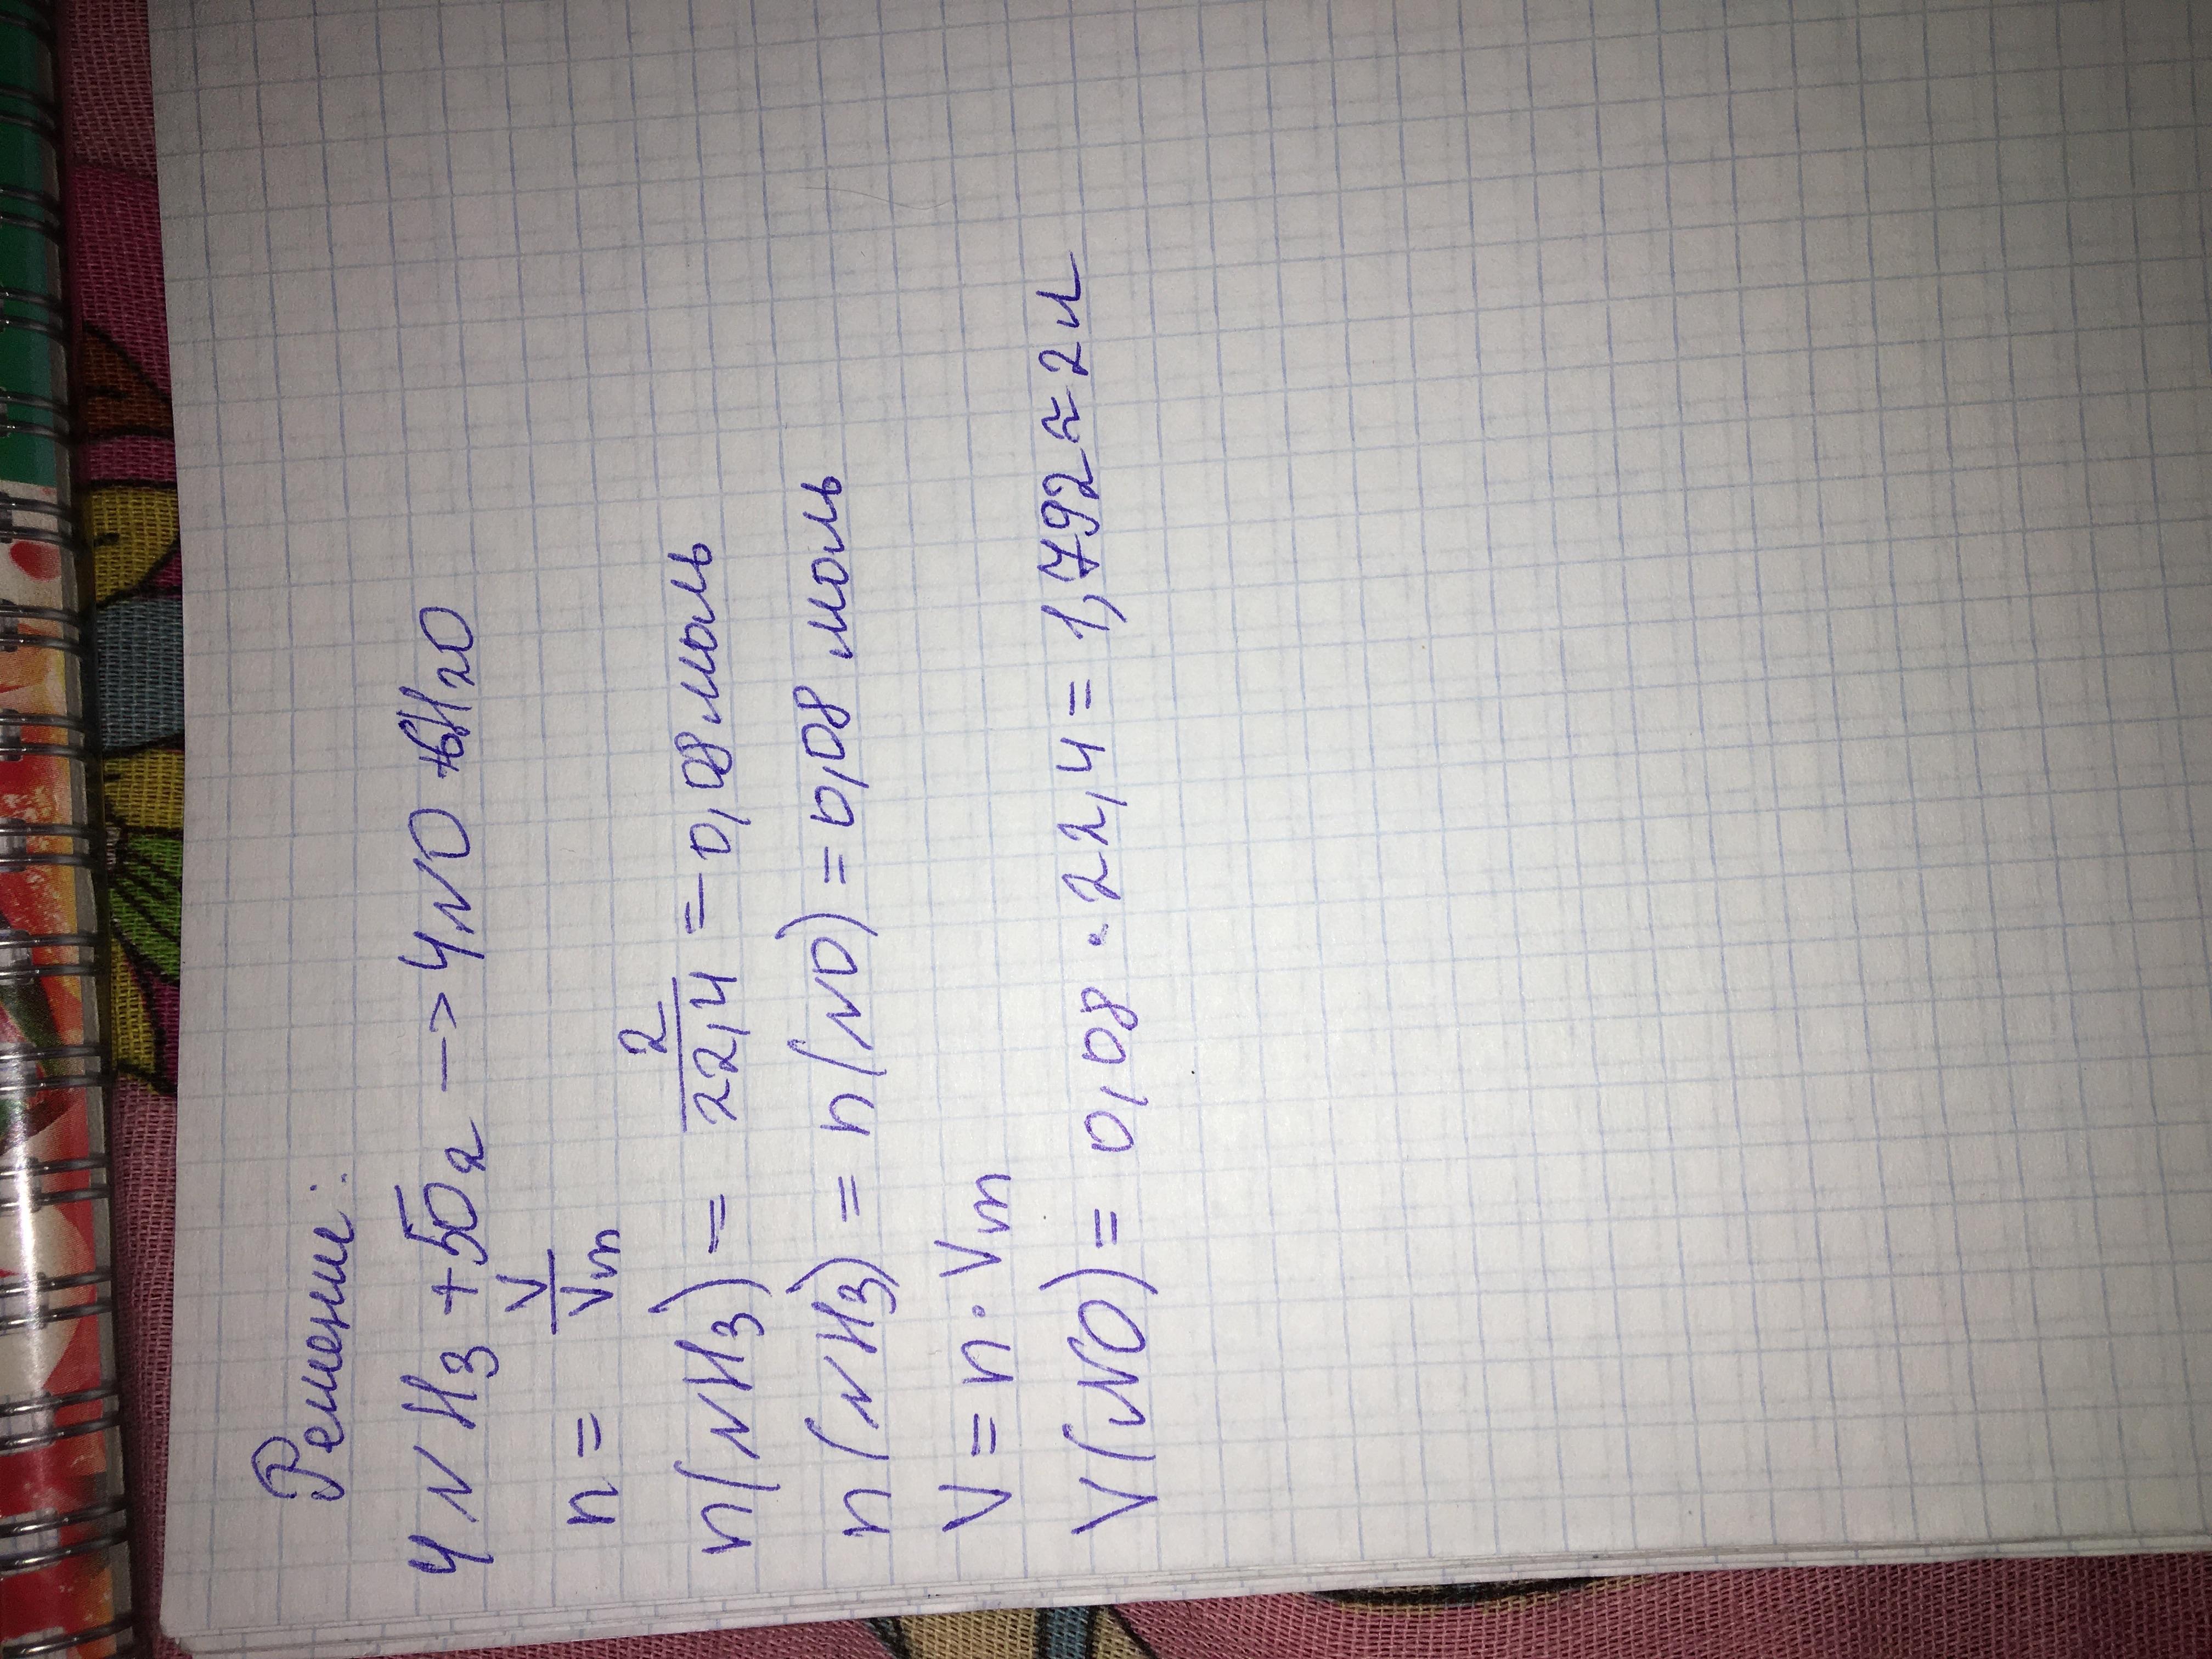 Решение:
4NH₃ + 5O₂ → 4NO + 6H₂O
n = V/Vm
n(NH₃) = 2/22,4 = 0,08 моль
n(NH₃) = n(NO) = 0,08 моль
V = n · Vm
V(NO) = 0,08 · 22,4 = 1,792 ≈ 2 л